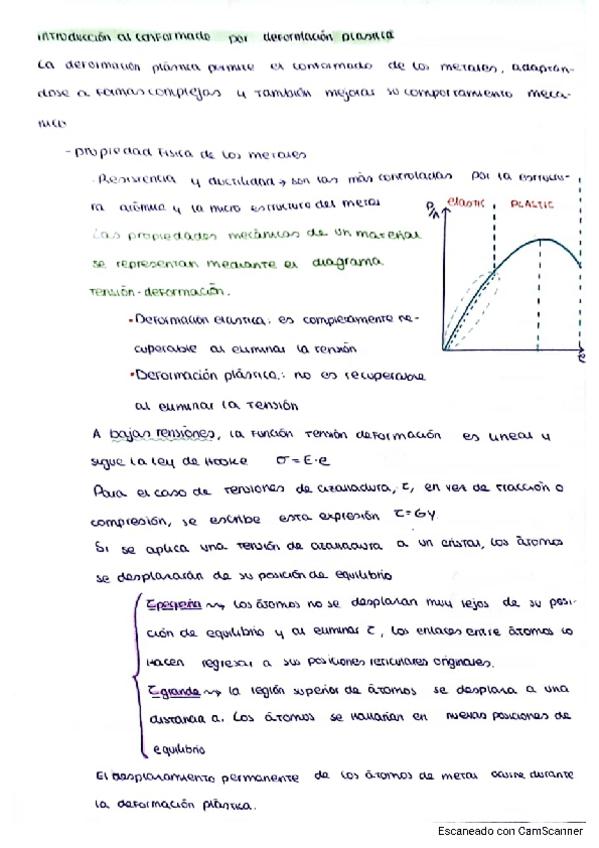 Introducción al conformado por deformación plástica
La deformación plástica permite el conformado de los metales, adaptán-
dose a formas complejas y también mejorar su comportamiento mecá-
nico
- propiedad física de los metales
· Resistencia y ductilidad → son las más controladas por la estructu-
ra atómica y la micro estructura del metal
Las propiedades mecánicas de un material
se representan mediante el diagrama
tensión-deformación.
P/A
elastic
PLASTIC
e
• Deformación elástica: es completamente re-
cuperable al eliminar la tensión
• Deformación plástica: no es recuperable
al eliminar la tensión
A bajas tensiones, la función tensión deformación es lineal y
sigue la ley de Hooke σ=E·e
Para el caso de tensiones de cizalladura, τ, en vez de tracción o
compresión, se escribe esta expresión τ=Gγ
Si se aplica una tensión de cizalladura a un cristal, los átomos
se desplazarán de su posición de equilibrio
τ pequeña ⇝ los átomos no se desplazan muy lejos de su posi-
ción de equilibrio y al eliminar τ, los enlaces entre átomos lo
hacen regresar a sus posiciones reticulares originales.
τ grande ⇝ la región superior de átomos se desplaza a una
distancia a. Los átomos se hallarían en nuevas posiciones de
equilibrio
El desplazamiento permanente de los átomos de metal ocurre durante
la deformación plástica.
Escaneado con CamScanner